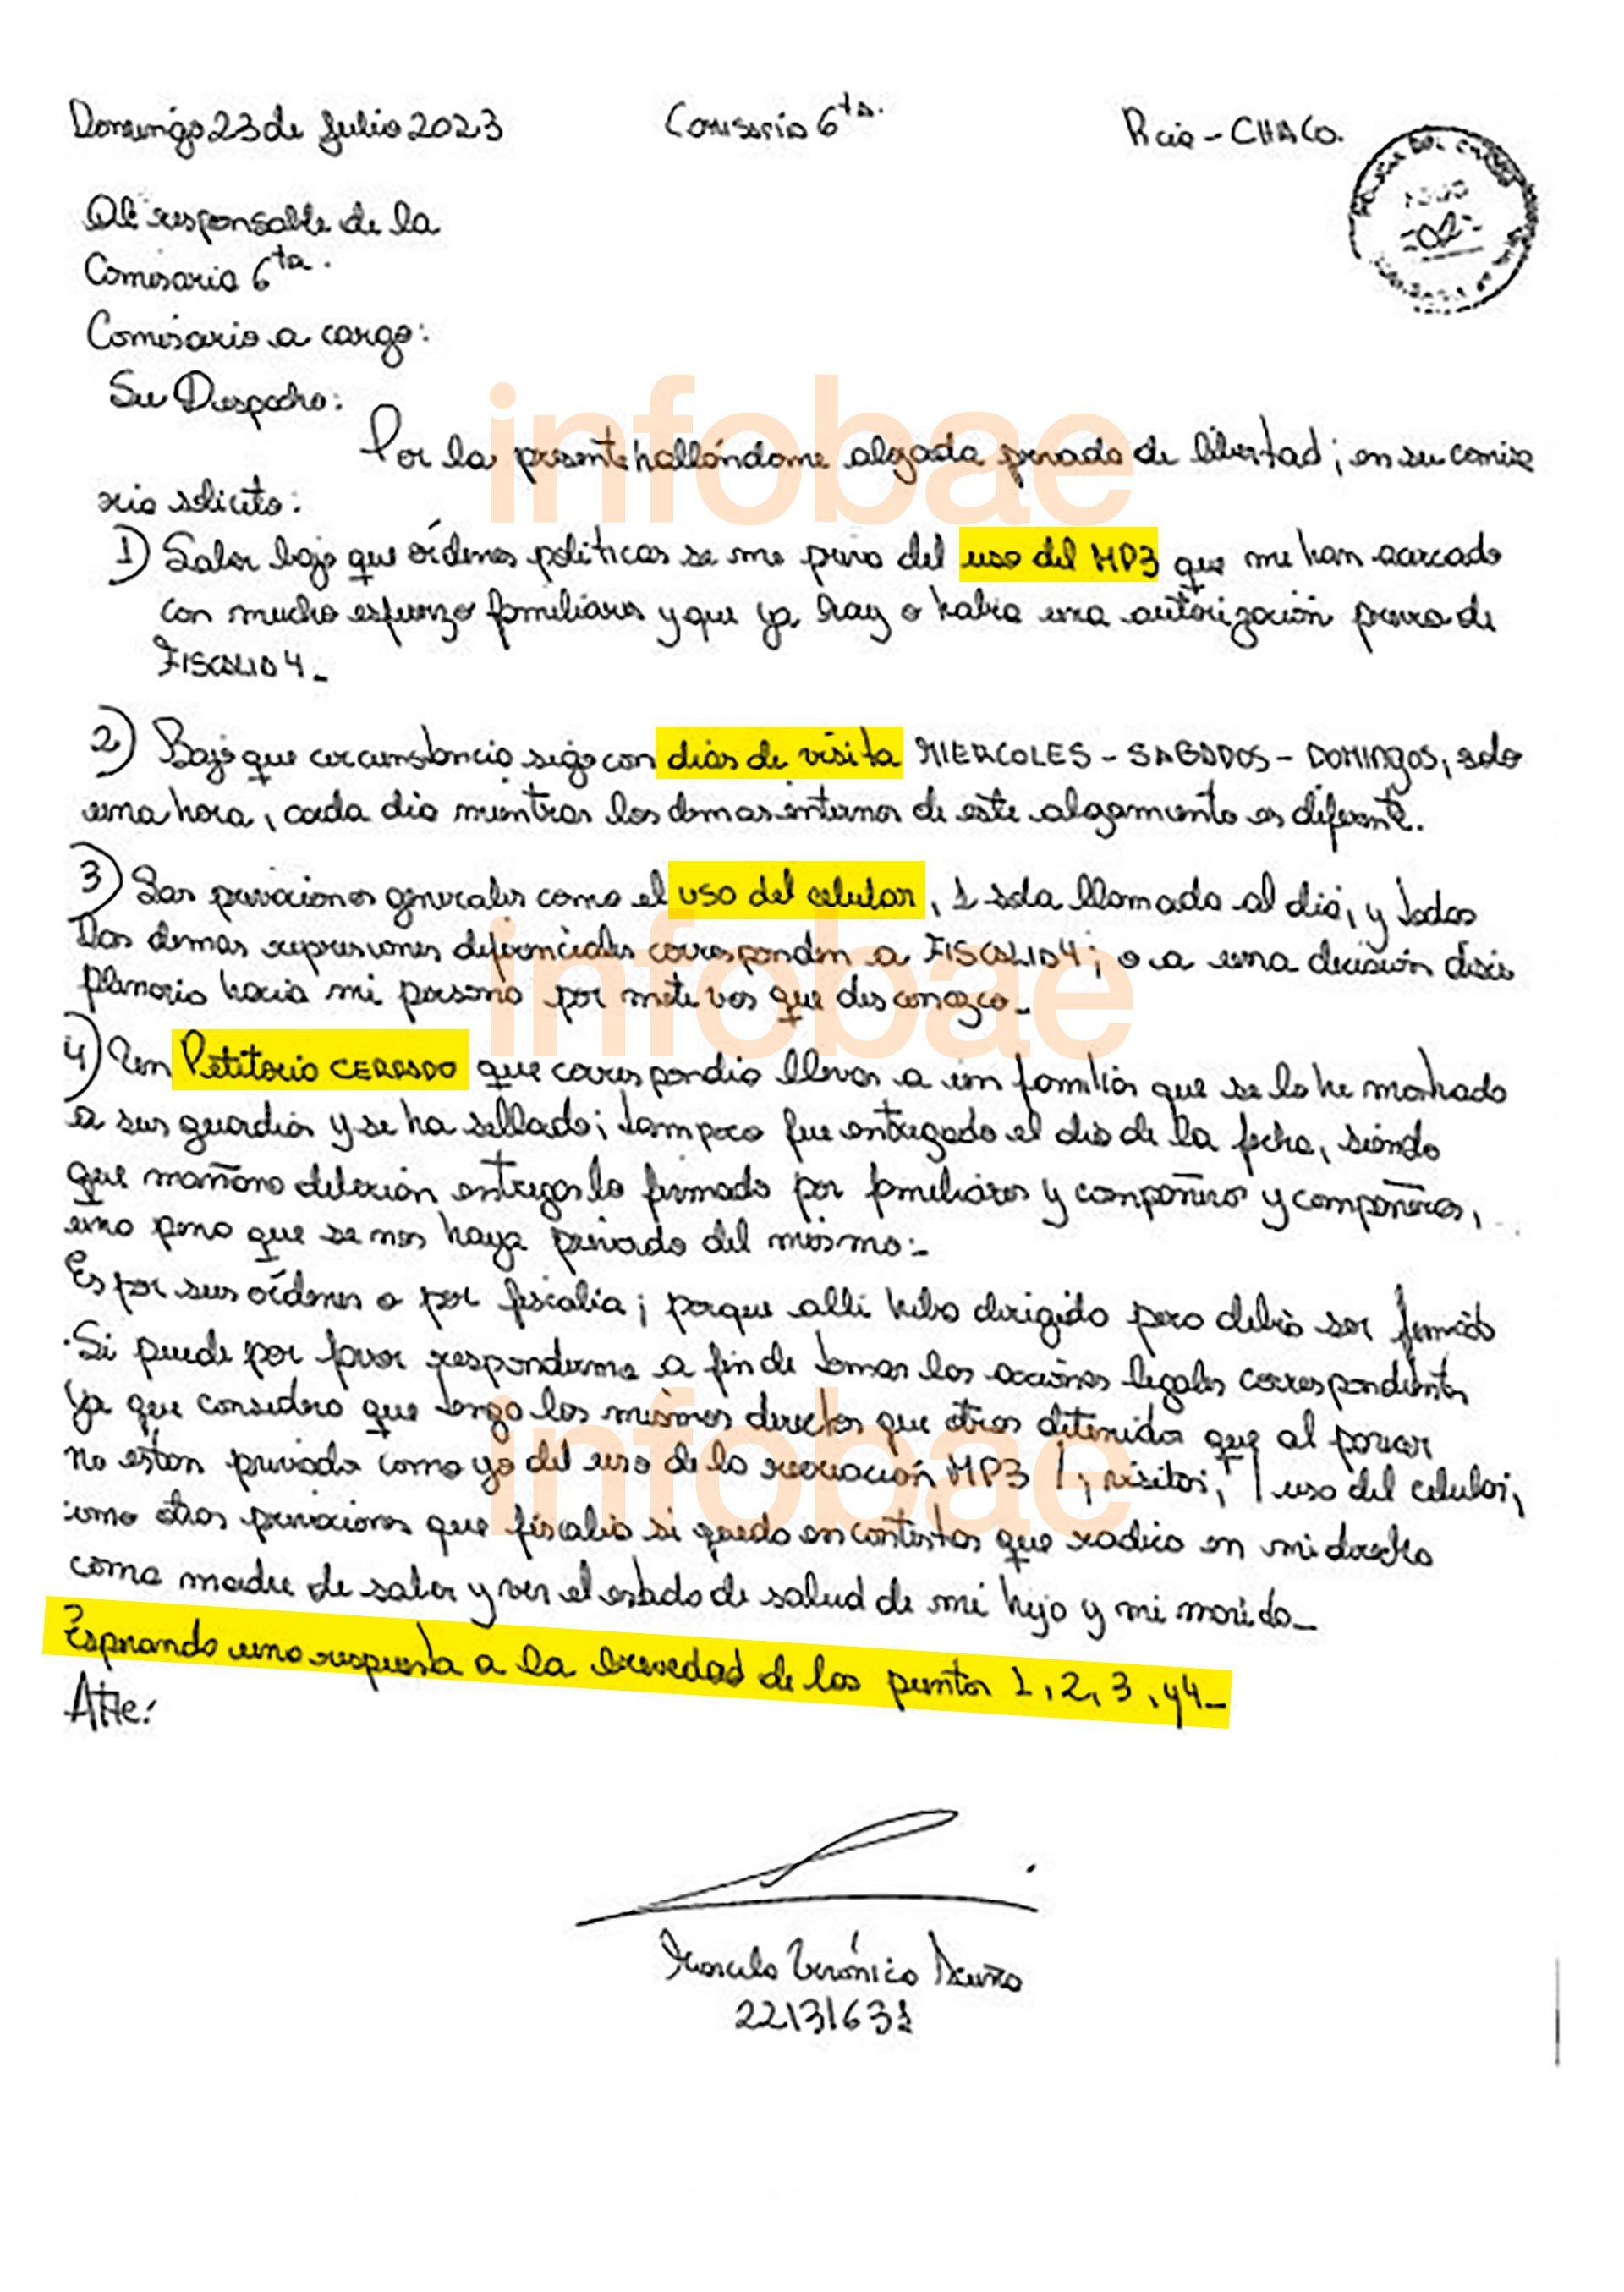 Domingo 23 de Julio 2023 Comisaria 6ta. Rcia - CHACO.
Al responsable de la
Comisaria 6ta.
Comisario a cargo:
Su Despacho:
Por la presente hallándome alojada privada de libertad; en su comisa
ria solicito:
1) Saber bajo que órdenes políticas se me priva del uso del MP3 que me han acercado
con mucho esfuerzo familiares y que ya hay o había una autorización previa de
FISCALIA 4_
2) Bajo que circunstancia sigo con dias de visita MIERCOLES - SABADOS - DOMINGOS, solo
una hora, cada dia mientras los demas internos de este alojamiento es diferente.
3) Las privaciones generales como el uso del celular, 1 sola llamada al dia, y todas
las demas represiones diferenciales corresponden a FISCALIA 4; o a una decisión disci
plinaria hacia mi persona por motivos que desconozco_
4) Un Petitorio CERRADO que correspondio llevar a un familiar que se lo he mostrado
a sus guardias y se ha sellado; tampoco fue entregado el dia de la fecha, siendo
que mañana deberian entregarlo firmado por familiares y compañeros y compañeras,
una pena que se nos haya privado del mismo:-
Es por sus órdenes o por fiscalia; porque alli hibo dirigido pero debia ser firmado
. Si puede por favor responderme a fin de tomar las acciones legales correspondientes
Ya que considero que tengo los mismos derechos que otras detenidas que al parecer
no estan privadas como yo del uso de la recreación MP3 /, visitas, / uso del celular,
como otras privaciones que fiscalia si quedo en contestar que radica en mi derecho
como madre de saber y ver el estado de salud de mi hijo y mi marido_
Esperando una respuesta a la brevedad de los puntos 1, 2, 3, y 4_
Atte:
Marcela Verónica Acuña
22131631
infobae
infobae
infobae